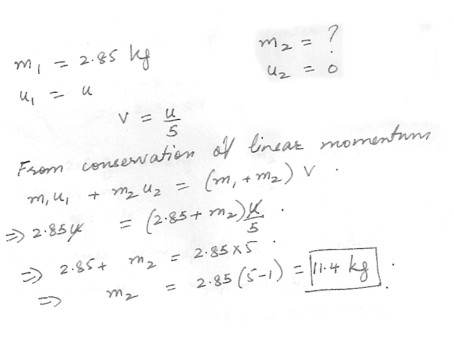 m₁ = 2.85 kg
u₁ = u
m₂ = ?
u₂ = 0
V = u/5
From conservation of linear momentum
m₁u₁ + m₂u₂ = (m₁ + m₂) V .
⇒ 2.85u = (2.85 + m₂) u/5 .
⇒ 2.85 + m₂ = 2.85 x 5 .
⇒ m₂ = 2.85 (5-1) = 11.4 kg .